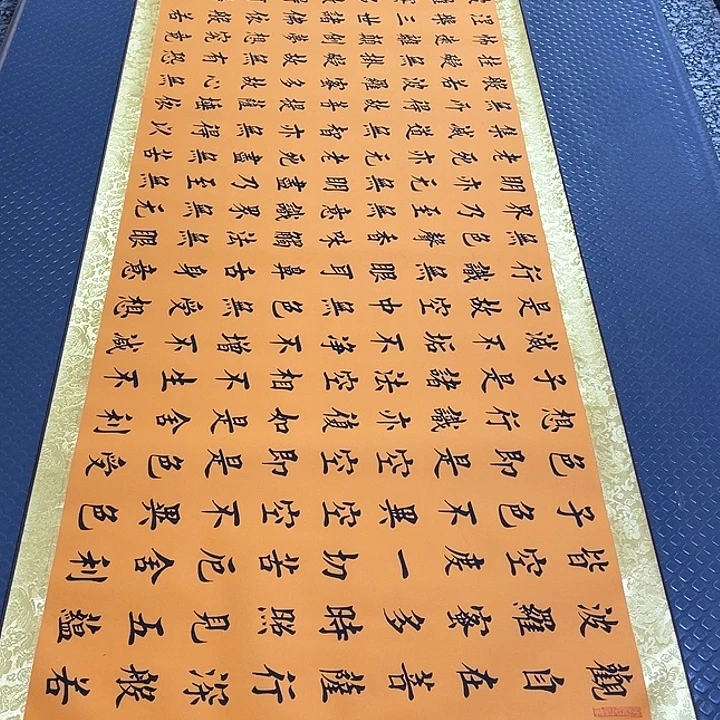 觀自在菩薩行深般若
波羅蜜多時照見五蘊
皆空度一切苦厄舍利
子色不異空空不異色
色即是空空即是色受
想行識亦復如是舍利
子是諸法空相不生不
滅不垢不净不增不減
是故空中無色無受想
行識無眼耳鼻舌身意
無色聲香味觸法無眼
界乃至無意識界無无
明亦无無明盡乃至無
老死亦无老死盡無苦
集滅道無智亦無得以
無所得故菩提薩埵依
般若波羅蜜多故心無
罣礙無罣礙故無有恐
怖遠離顛倒夢想究竟
涅槃三世諸佛依般若